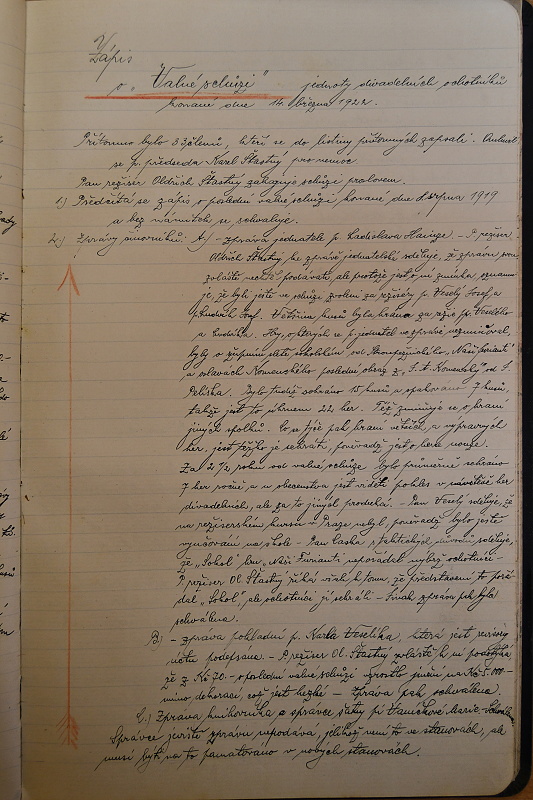 Zápis
o „Valné schůzi" jednoty divadelních ochotníků
konané dne 14. března 1922.
Přítomno bylo 33 členů, kteří se do listiny přítomných zapsali. Omluvil
se p. předseda Karel Šťastný pro nemoc.
Pan režisér Oldřich Šťastný zahajuje schůzi proslovem.
1.) Předčítá se zápis o poslední valné schůzi konané dne srpna 1919
a bez námitek se schvaluje.
2.) Zprávy činovníků: A.) - zpráva jednatele p. Ladislava - P. režisér
Oldřich Šťastný ke zprávě jednatelské sděluje, že zprávu
zvláště nechtěl podávati, ale protože jest o ní zmínka
je, že byli ještě ve schůzi zvoleni za režiséry p. Veselý Josef, a
Josef. Většina kusů byla hrána za režie p. Veselého
a Hry, o kterých se p. jednatel ve zprávě nezmiňoval,
byly o sokolském od Stroupežnického, Naši furianti
a v oslavách Komenského poslední obraz z J. A. Komenský od
Bylo tudíž sehráno 15 kusů a opakováno 7 kusů,
takže jest to úhrnem 22 her. Též zmiňuje se o hraní
jiných spolků. Co se týče pak hraní větších a výpravných
her, jest těžko je sehráti, poněvadž jest o herce nouze.
Za 2 1/2 roku od valné schůze bylo průměrně sehráno
7 her ročně a u obecenstva jest viděti pokles v návštěvě her
divadelních, ale za to jiných produkcí. - Pan Veselý sděluje, že
na režisérském kursu v Praze nebyl, poněvadž bylo ještě
vyučování na škole - Pan z taktických důvodů sděluje,
že „Sokol" hru „Naši Furianti" nepořádal nýbrž ochotníci -
P. režisér Ol. Šťastný říká však k tomu, že představení to pořá-
dal „Sokol", ale ochotníci ji sehráli - Jinak zpráva pak byla
schválena.
B.) - zpráva pokladní p. Karla Veselíka, která jest revisory
účtů podepsána. - P. režisér Ol. Šťastný zvláště k ní podotýká,
že z Kč 70.- o poslední valné schůzi vzrostlo jmění na Kč 5.000.-
mimo dekorací, což jest hezké - Zpráva pak schválena.
C.) Zpráva knihovníka a správce šatny pí Marie - Schválena.
Správce jeviště zprávu nepodává, jelikož není to ve stanovách, ale
musí býti na to pamatováno v nových stanovách.